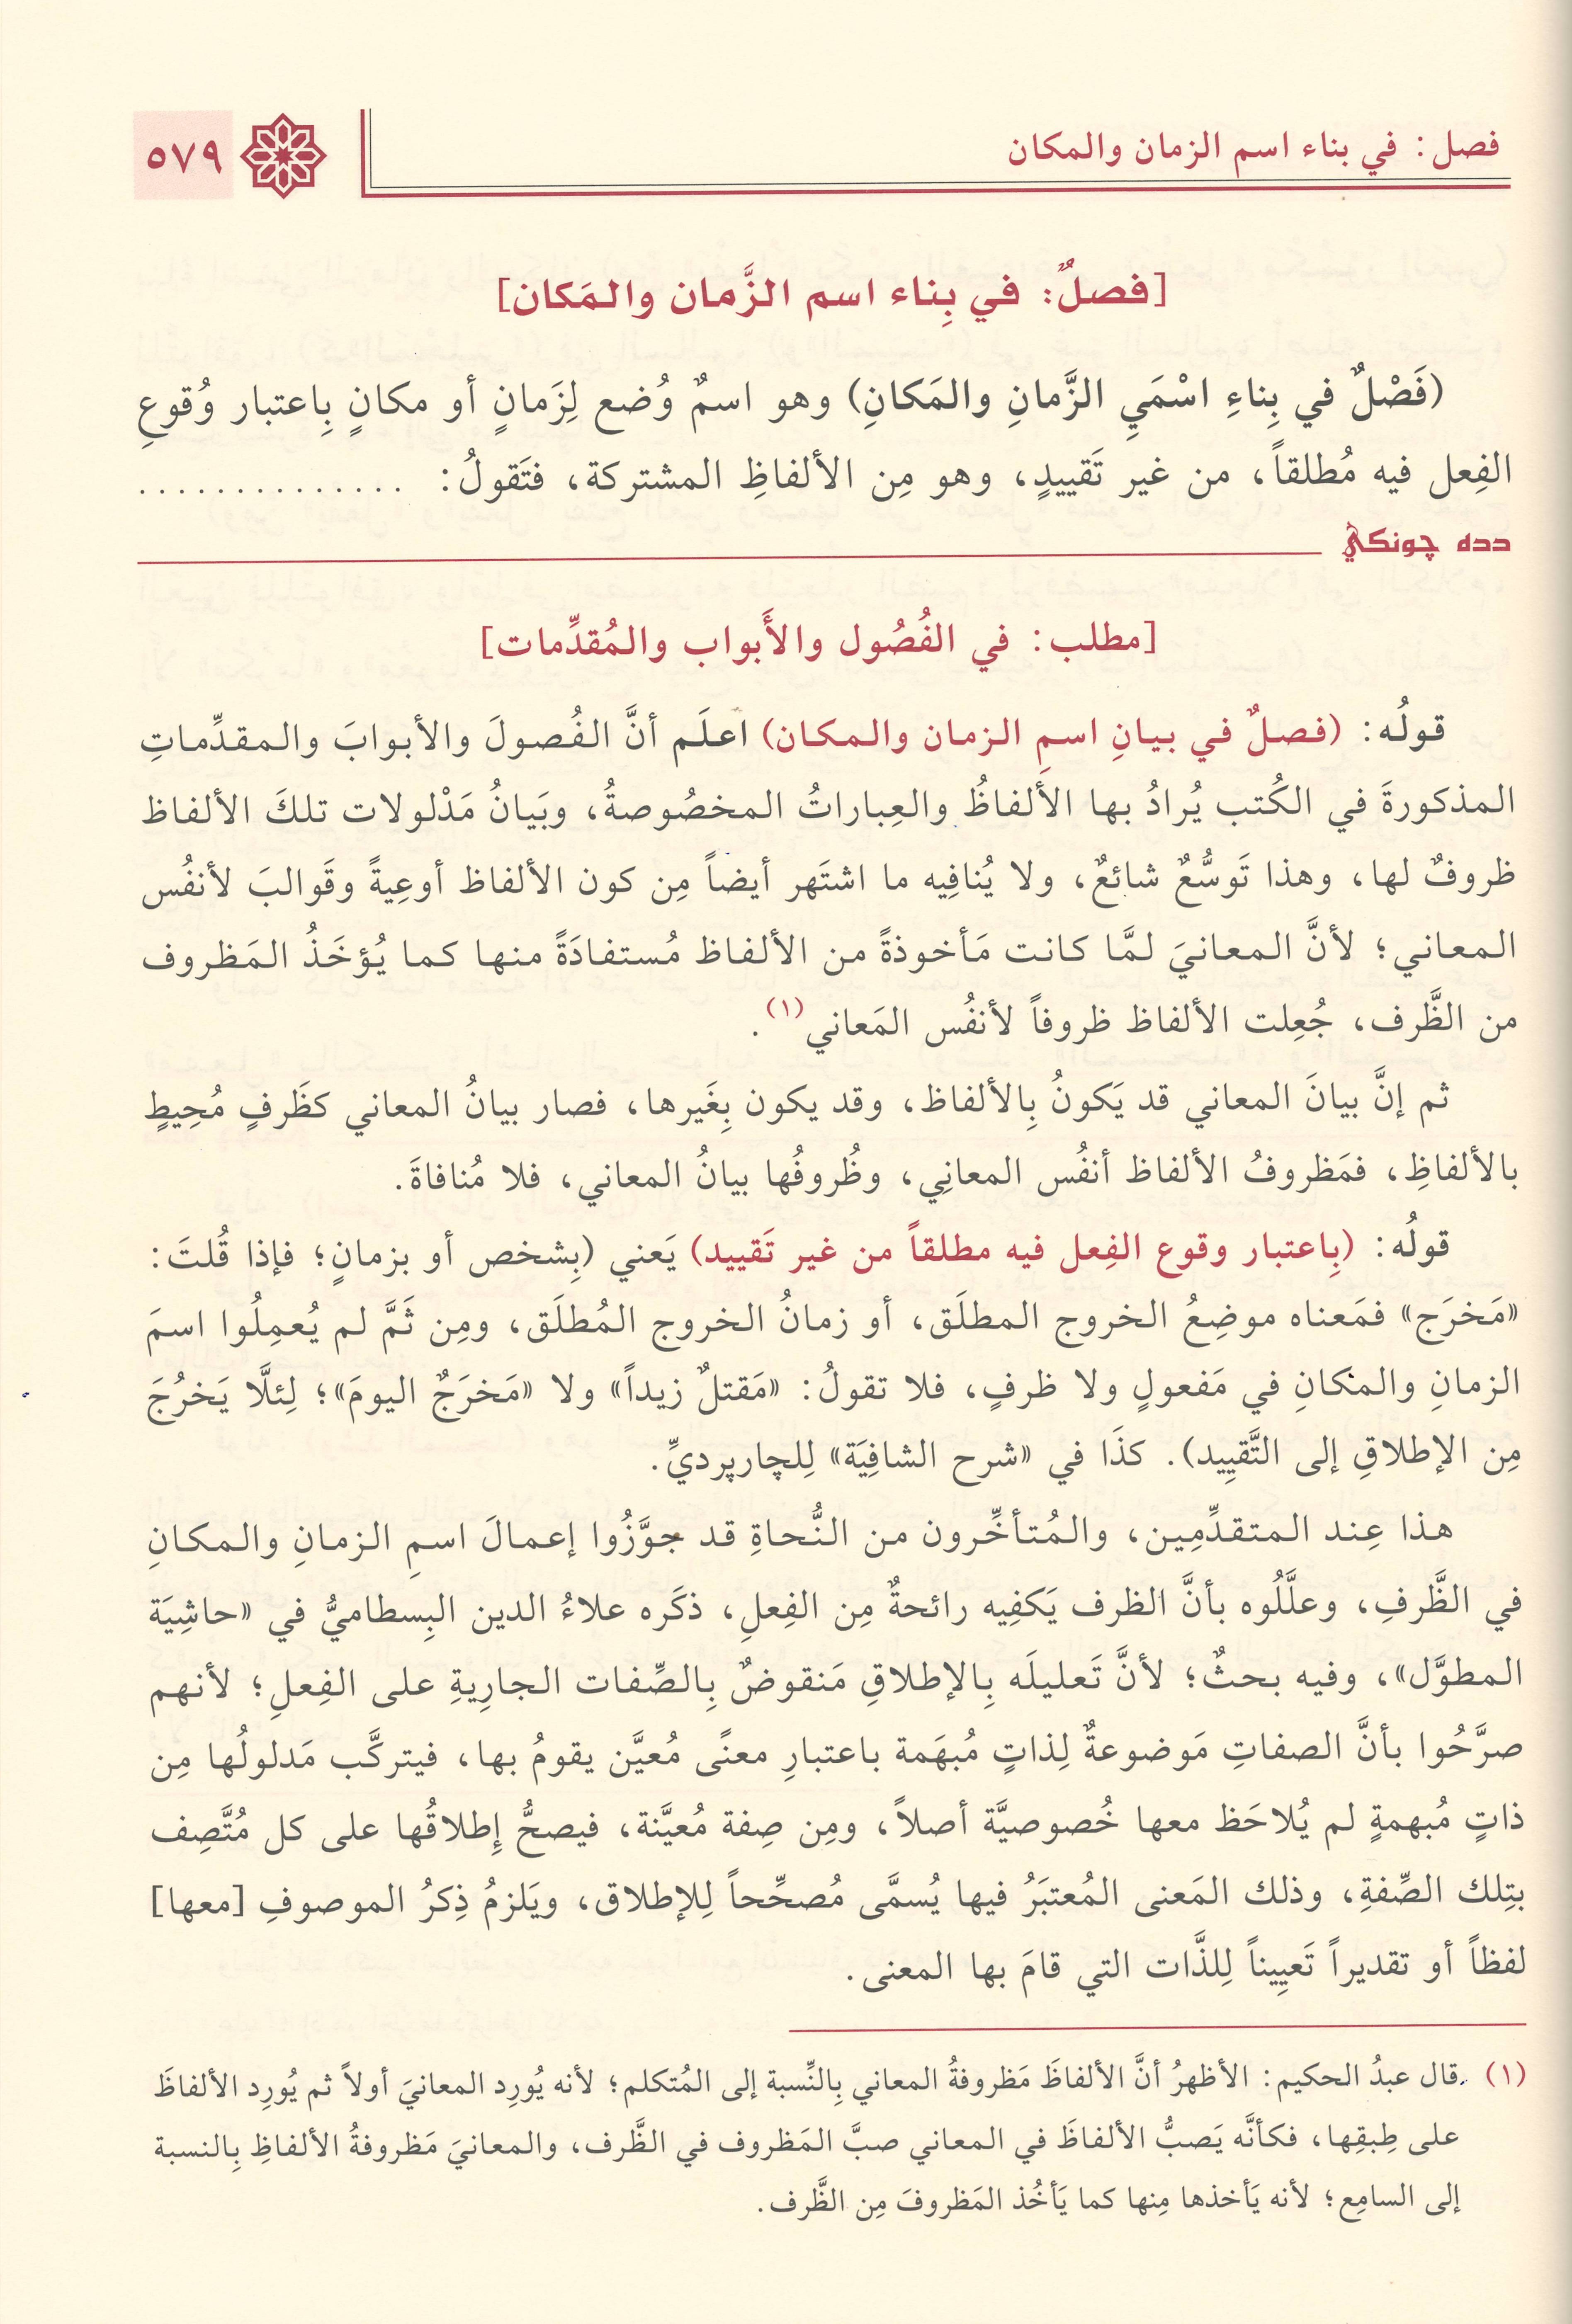 فصل: في بناء اسم الزمان والمكان
٥٧٩
[فصلٌ: في بِناء اسم الزَّمان والمَكان]
(فَصْلٌ في بِناءِ اسْمَيِ الزَّمانِ والمَكانِ) وهو اسمٌ وُضع لِزَمانٍ أو مكانٍ بِاعتبار وُقوعِ
الفِعل فيه مُطلقاً، من غير تَقييدٍ، وهو مِن الألفاظِ المشتركة، فتَقولُ: ..............
دده چونكي
[مطلب: في الفُصُول والأَبواب والمُقدِّمات]
قولُه: (فصلٌ في بيانِ اسمِ الزمان والمكان) اعلَم أنَّ الفُصولَ والأبوابَ والمقدِّماتِ
المذكورةَ في الكُتب يُرادُ بها الألفاظُ والعِباراتُ المخصُوصةُ، وبَيانُ مَدْلولات تلكَ الألفاظ
ظروفٌ لها، وهذا تَوسُّعٌ شائعٌ، ولا يُنافِيه ما اشتَهر أيضاً مِن كون الألفاظ أوعِيةً وقَوالبَ لأنفُس
المعاني؛ لأنَّ المعانيَ لمَّا كانت مَأخوذةً من الألفاظ مُستفادَةً منها كما يُؤخَذُ المَظروف
من الظَّرف، جُعِلت الألفاظ ظروفاً لأنفُس المَعاني(١).
ثم إنَّ بيانَ المعاني قد يَكونُ بِالألفاظ، وقد يكون بِغَيرها، فصار بيانُ المعاني كظَرفٍ مُحِيطٍ
بالألفاظِ، فمَظروفُ الألفاظ أنفُس المعانِي، وظُروفُها بيانُ المعاني، فلا مُنافاةَ.
قولُه: (بِاعتبار وقوع الفِعل فيه مطلقاً من غير تَقييد) يَعني (بِشخص أو بزمانٍ؛ فإذا قُلتَ:
«مَخرَج» فمَعناه موضِعُ الخروج المطلَق، أو زمانُ الخروج المُطلَق، ومِن ثَمَّ لم يُعمِلُوا اسمَ
الزمانِ والمكانِ في مَفعولٍ ولا ظرفٍ، فلا تقولُ: «مَقتلٌ زيداً» ولا «مَخرَجٌ اليومَ»؛ لِئلَّا يَخرُجَ
مِن الإطلاقِ إلى التَّقيِيد). كذَا في «شرح الشافِيَة» لِلچارپرديِّ.
هذا عِند المتقدِّمِين، والمُتأخِّرون من النُّحاةِ قد جوَّزُوا إعمالَ اسمِ الزمانِ والمكانِ
في الظَّرفِ، وعلَّلُوه بأنَّ الظرف يَكفِيه رائحةٌ مِن الفِعلِ، ذكَره علاءُ الدين البِسطاميُّ في «حاشِيَة
المطوَّل»، وفيه بحثٌ؛ لأنَّ تَعليلَه بِالإطلاقِ مَنقوضٌ بِالصِّفات الجارِيةِ على الفِعلِ؛ لأنهم
صرَّحُوا بأنَّ الصفاتِ مَوضوعةٌ لِذاتٍ مُبهَمة باعتبارِ معنًى مُعيَّن يقومُ بها، فيتركَّب مَدلولُها مِن
ذاتٍ مُبهمةٍ لم يُلاحَظ معها خُصوصيَّة أصلاً، ومِن صِفة مُعيَّنة، فيصحُّ إِطلاقُها على كل مُتَّصِف
بتِلك الصِّفةِ، وذلك المَعنى المُعتبَرُ فيها يُسمَّى مُصحِّحاً لِلإطلاق، ويَلزمُ ذِكرُ الموصوفِ [معها]
لفظاً أو تقديراً تَعيِيناً لِلذَّات التي قامَ بها المعنى.
(١) قال عبدُ الحكيم: الأظهرُ أنَّ الألفاظَ مَظروفةُ المعاني بِالنِّسبة إلى المُتكلم؛ لأنه يُورِد المعانيَ أولاً ثم يُورِد الألفاظَ
على طِبقِها، فكأنَّه يَصبُّ الألفاظَ في المعاني صبَّ المَظروف في الظَّرف، والمعانيَ مَظروفةُ الألفاظِ بِالنسبة
إلى السامِع؛ لأنه يَأخذها مِنها كما يَأخُذ المَظروفَ مِن الظَّرف.